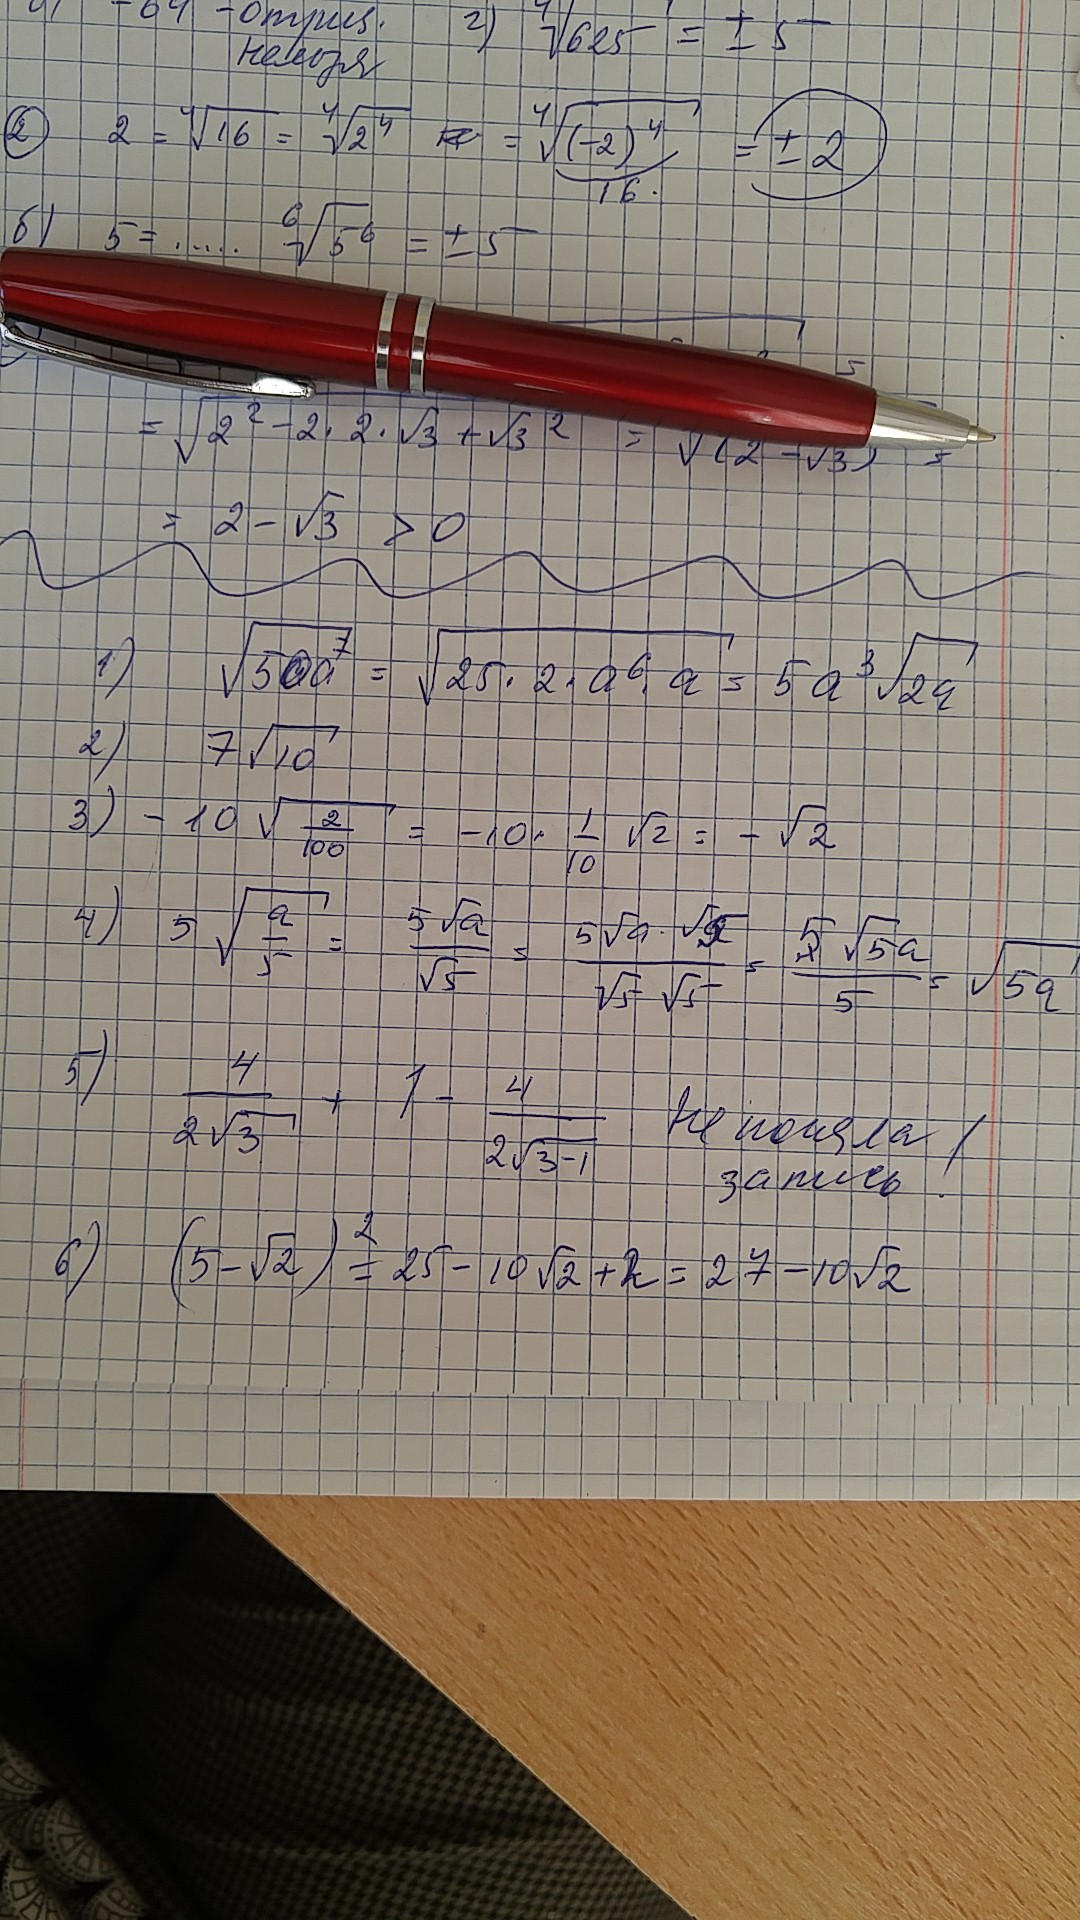 -64 -отриц. г) ⁴√625 = ± 5
нельзя
② 2 = ⁴√16 = ⁴√2⁴ = ⁴√(-2)⁴ = ± 2
16.
б) 5 = ..... ⁶√5⁶ = ± 5
= √2² - 2 · 2 · √3 + √3² = √(2 - √3)
= 2 - √3 > 0
1) √50a⁷ = √25 · 2 · a⁶ · a = 5a³√2a
2) 7√10
3) - 10 √2/100 = -10 · 1/10 √2 = - √2
4) 5 √a/5 = 5√a/√5 = 5√a · √5/√5 √5 = 5 √5a/5 = √5a
5) 4/2√3 + 1 - 4/2√3-1 Не поняла
запись!
6) (5 - √2)² = 25 - 10√2 + 2 = 27 - 10√2